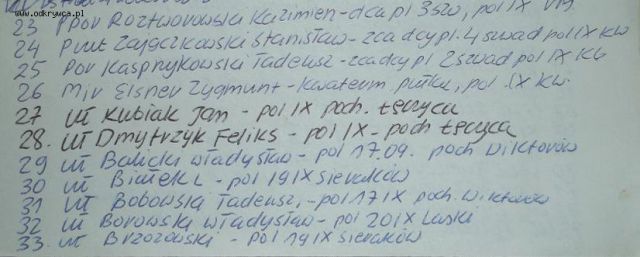 www.odkrywca.pl
23 ppor Roztworowski Kazimierz - dca pl 3 szw, pol IX
24 ppor Zajączkowski Stanisław - zca dcy pl. 4 szwad pol IX KW
25 Por Kasprzykowski Tadeusz - zca dcy pl 2 szwad pol IX KW
26 Mjr Elsner Zygmunt - kwaterm pułku, pol IX KW.
27 uł Kubiak Jan - pol IX poch. Łęczyca
28. uł Dmytrzyk Feliks - pol IX - poch Łęczyca
29 uł Balicki Władysław - pol 17.09. poch Wiktorów
30 uł Białek L - pol 19 IX Sieraków
31 uł Bobowski Tadeusz, - pol 17 IX poch. Wiktorów
32 uł Borowski Władysław - pol 20 IX Laski
33. uł Brzozowski - pol 19 IX Sieraków